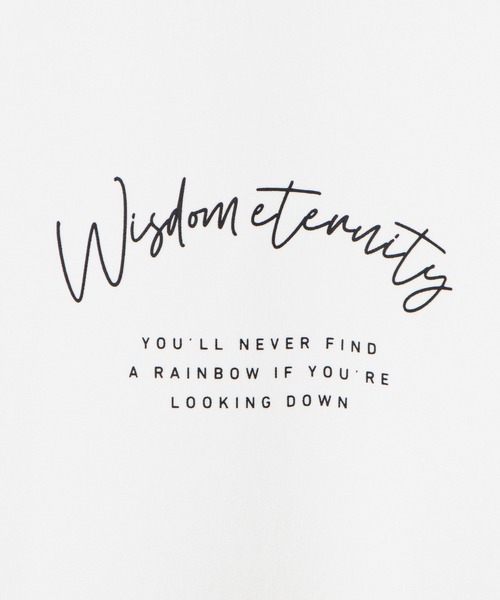 Wisdom eternity
YOU'LL NEVER FIND
A RAINBOW IF YOU'RE
LOOKING DOWN